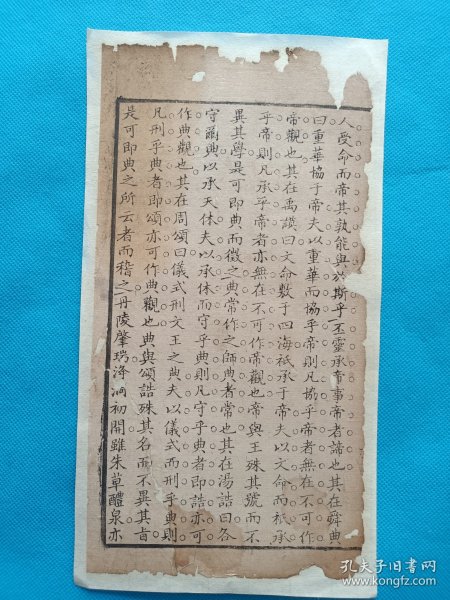 人受命而帝其孰能與於斯乎丕靈承帝事帝者諦也其在舜典
曰重華協于帝夫以重華而協乎帝則凡協乎帝者無在不可作
帝觀也其在禹謨曰文命敷于四海祗承于帝夫以文命而祗承
乎帝則凡承乎帝者亦無在不可作帝觀也帝與王殊其號而不
異其學是可即典而徵之典常作之師典者常也其在湯誥曰各
守爾典以承天休夫以承休而守乎典則凡守乎典者即誥亦可
作典觀也其在周頌曰儀式刑文王之典夫以儀式而刑乎典則
凡刑乎典者即頌亦可作典觀也典與頌誥殊其名而不異其旨
是可即典之所云者而稽之丹陵肇瑞洚洞初開雖朱草醴泉亦
孔夫子旧书网
kongfz.com